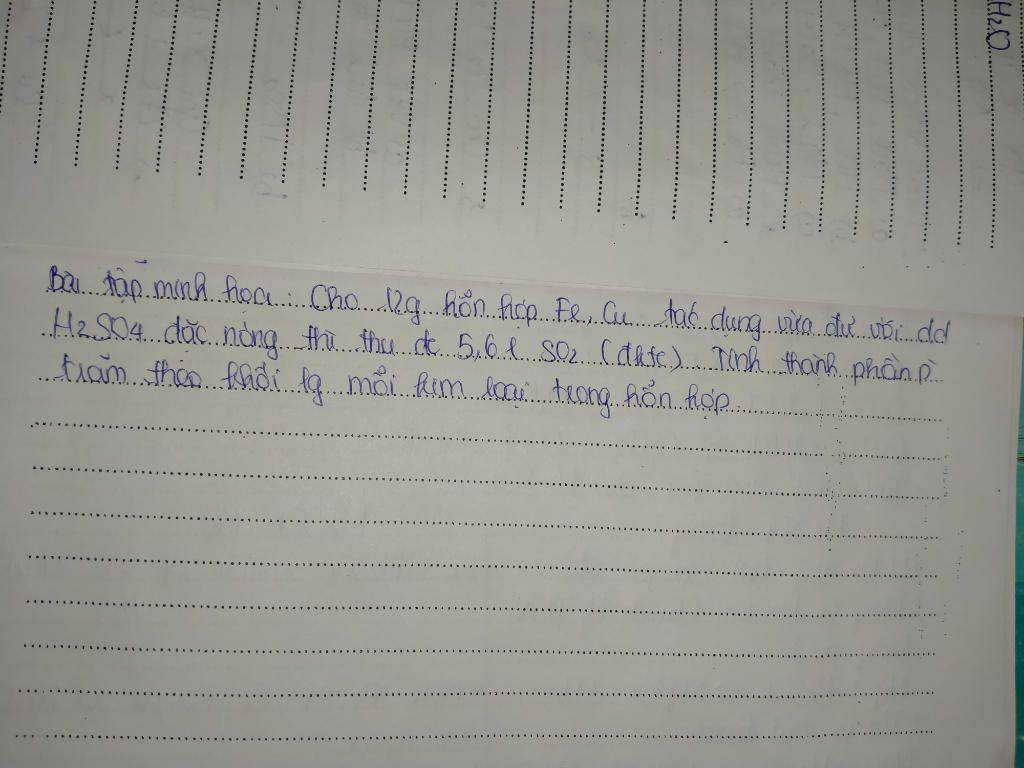 H₂O
Bài tập minh họa: Cho 12g hỗn hợp Fe, Cu tác dụng vừa đủ với dd
H₂SO₄ đặc nóng thì thu đc 5,6 l SO₂ (đktc). Tính thành phần p̀
trăm theo khối lg mỗi kim loại trong hỗn hợp